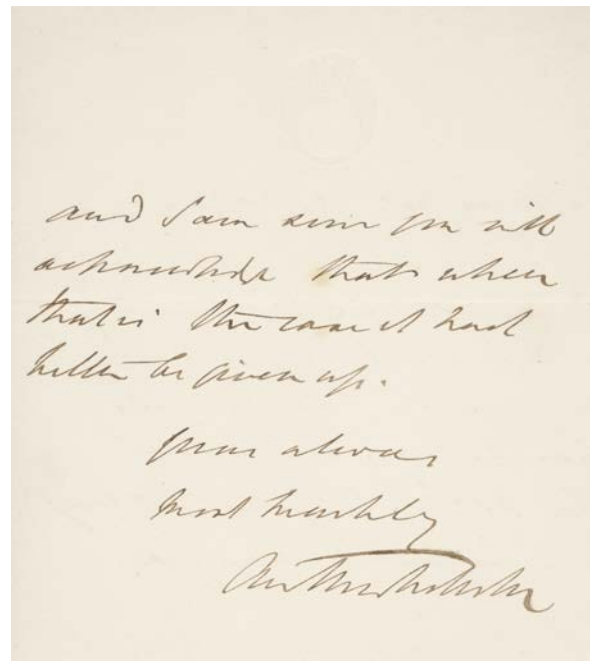 and I am sure you will
acknowledge that when
that is the case it had
better be given up.
yours always
most heartily